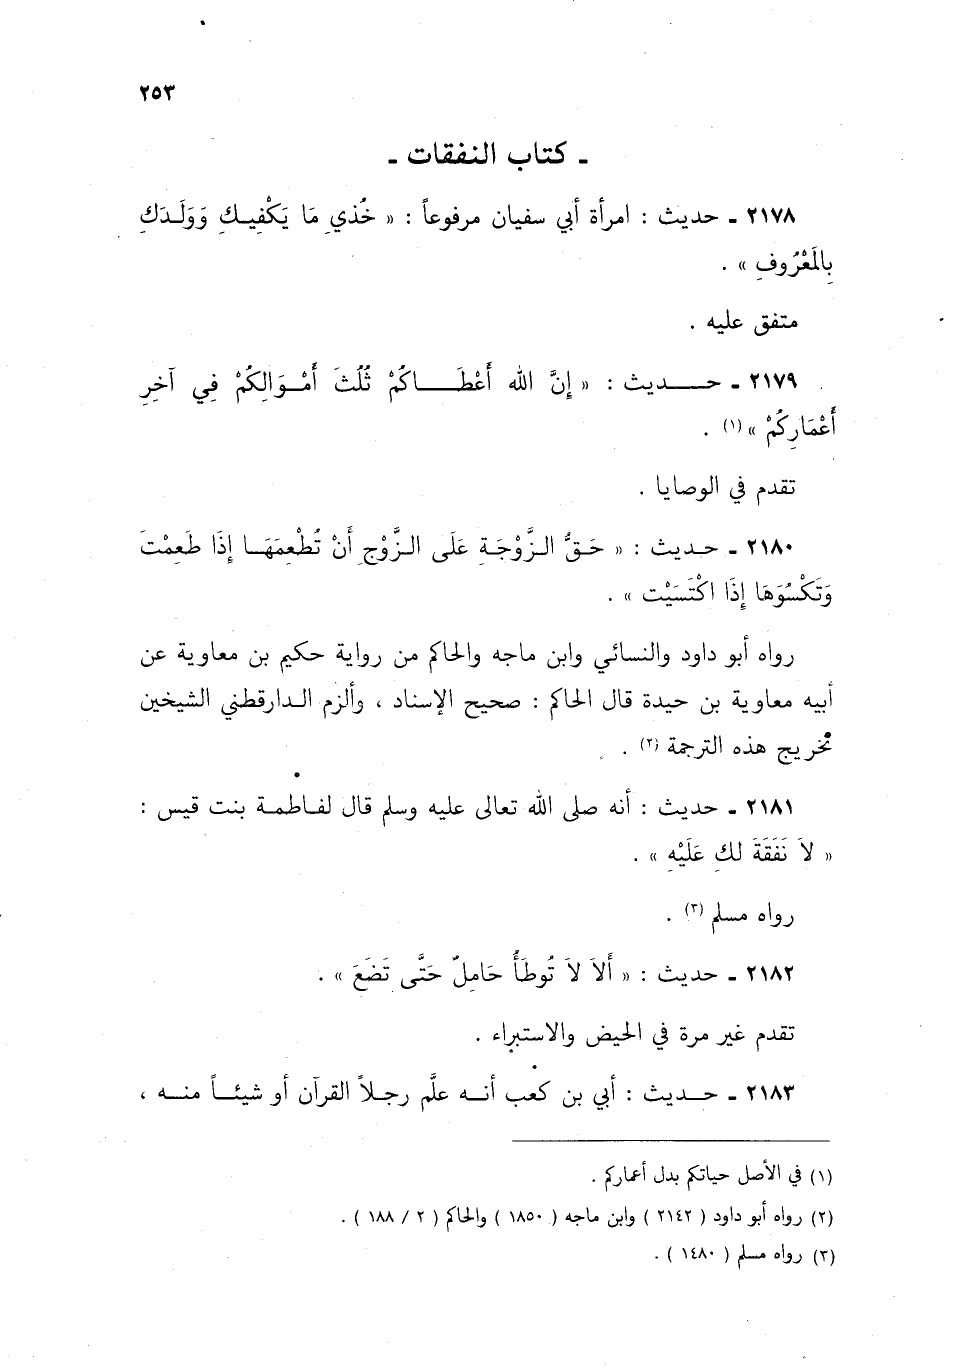 ٢٥٣
ـ كتاب النفقات ـ
٢١٧٨ ـ حديث : امرأة أبي سفيان مرفوعاً : « خُذي مَا يَكْفِيكِ وَوَلَدَكِ
بِالمَعْرُوفِ » .
متفق عليه .
٢١٧٩ ـ حديث : « إِنَّ الله أَعْطَاكُمْ ثُلُثَ أَمْوَالِكُمْ فِي آخِرِ
أَعْمَارِكُمْ » (١) .
تقدم في الوصايا .
٢١٨٠ ـ حديث : « حَقُّ الزَّوْجَةِ عَلَى الزَّوْجِ أَنْ تُطْعِمَهَا إِذَا طَعِمْتَ
وَتَكْسُوَهَا إِذَا اكْتَسَيْت » .
رواه أبو داود والنسائي وابن ماجه والحاكم من رواية حكيم بن معاوية عن
أبيه معاوية بن حيدة قال الحاكم : صحيح الإسناد ، وألزم الدارقطني الشيخين
تخريج هذه الترجمة (٢) .
٢١٨١ ـ حديث : أنه صلى الله تعالى عليه وسلم قال لفاطمة بنت قيس :
« لاَ نَفَقَةَ لكِ عَلَيْهِ » .
رواه مسلم (٣) .
٢١٨٢ ـ حديث : « أَلاَ لاَ تُوطَأُ حَامِلٌ حَتَّى تَضَعَ » .
تقدم غير مرة في الحيض والاستبراء .
٢١٨٣ ـ حديث : أبي بن كعب أنه علَّم رجلاً القرآن أو شيئاً منه ،
(١) في الأصل حياتكم بدل أعماركم .
(٢) رواه أبو داود ( ٢١٤٢ ) وابن ماجه ( ١٨٥٠ ) والحاكم ( ٢ / ١٨٨ ) .
(٣) رواه مسلم ( ١٤٨٠ ) .